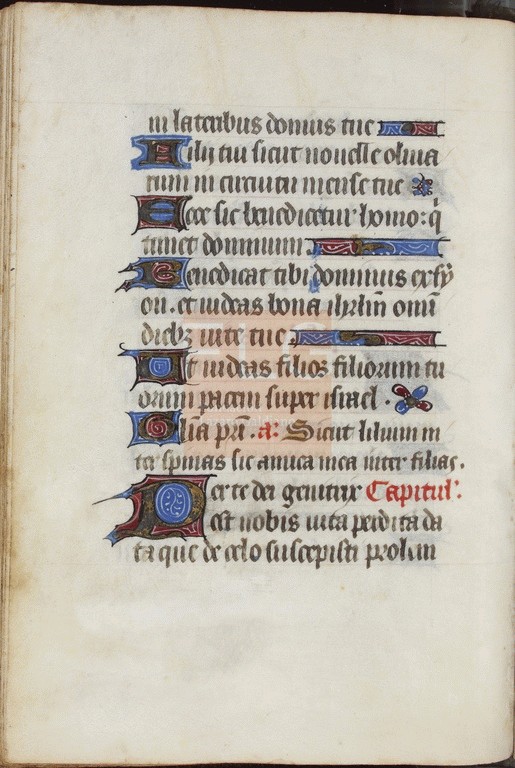 in lateribus domus tue
Filii tui sicut nouelle oliua
rum in circuitu mense tue
Ecce sic benedicetur homo: q̄
timet dominum
Benedicat tibi dominus ex sy
on. et uideas bona ihrlm̄ om̄i
dieb; uite tue
Et uideas filios filiorum tu
orum pacem super israel.
Gl̄ia pr̄i. a: Sicut lilium in
ter spinas sic amica mea inter filias.
Per te dei genitrix Capitul':
est nobis uita perdita da
ta que de celo suscepisti prolem